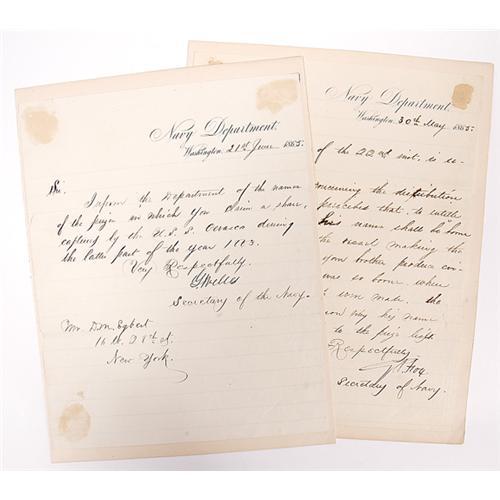 Navy Department,
Washington, 21st June 1865.
Sir,
Inform the Department of the names
of the prize in which you claim a share,
captured by the U.S.S. Ceraeca during
the latter part of the year 1863.
Very Respectfully
G Welles
Secretary of the Navy.
Mr. D.M. Egbert
16 W. 28th st.
New York.
Navy Department,
Washington, 30th May, 1865.
of the 22nd inst. is
concerning the distribution
prescribes that to entitle
his name shall be borne
the vessel making the
your brother produce
was so borne, when
mate. the
why his name
to the prize list
Respectfully
G V Fox
Secretary of Navy.